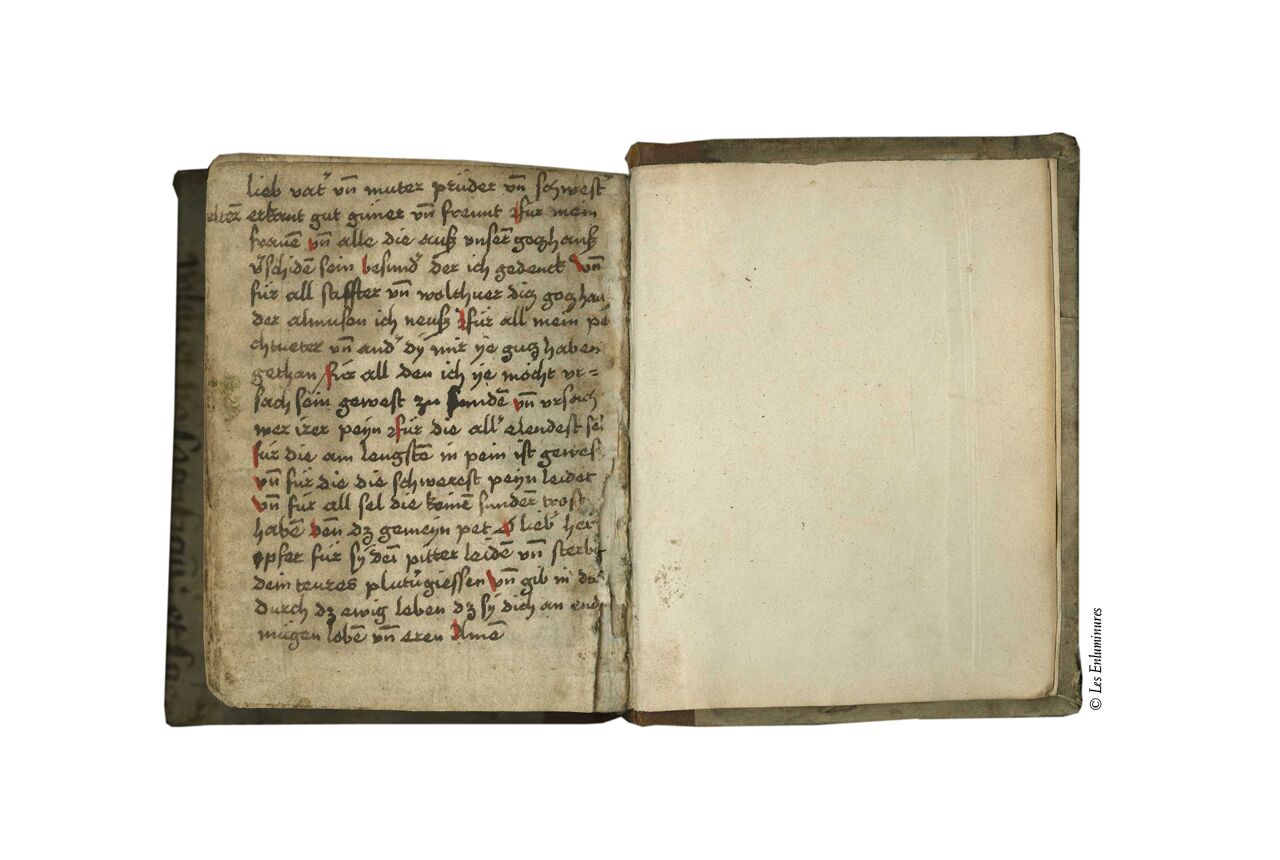 lieb vat' vn̄ muter prüder vn̄ schwest'
erkant gut güner vn̄ freunt für mein
frauē vn̄ alle die auß vnser̄ goczhauß
v'schidē sein besund' der ich gedenck vn̄
für all stiffter vn̄ diß goczhau
der almusen ich neuß für all mein pe
chtueter vn̄ and' dy mir ye gucz haben
gethan für all den ich ye möcht vr=
sach sein gewest zu sundē vn̄ vrsach
wer irer peyn für die all' elendest sel
für die am lengstē in pein ist gewes
vn̄ für die die schwerest peyn leidet
vn̄ für all sel die keinē sunder trost
habē den̄ dz gemeyn pet O lieb' her
opfer für sy dein̄ pitter leidē vn̄ sterbē
dein teures plutu'giessen vn̄ gib in
durch dz ewig leben dz sy dich an end
mügen lobē vn̄ eren Amē
© Les Enluminures